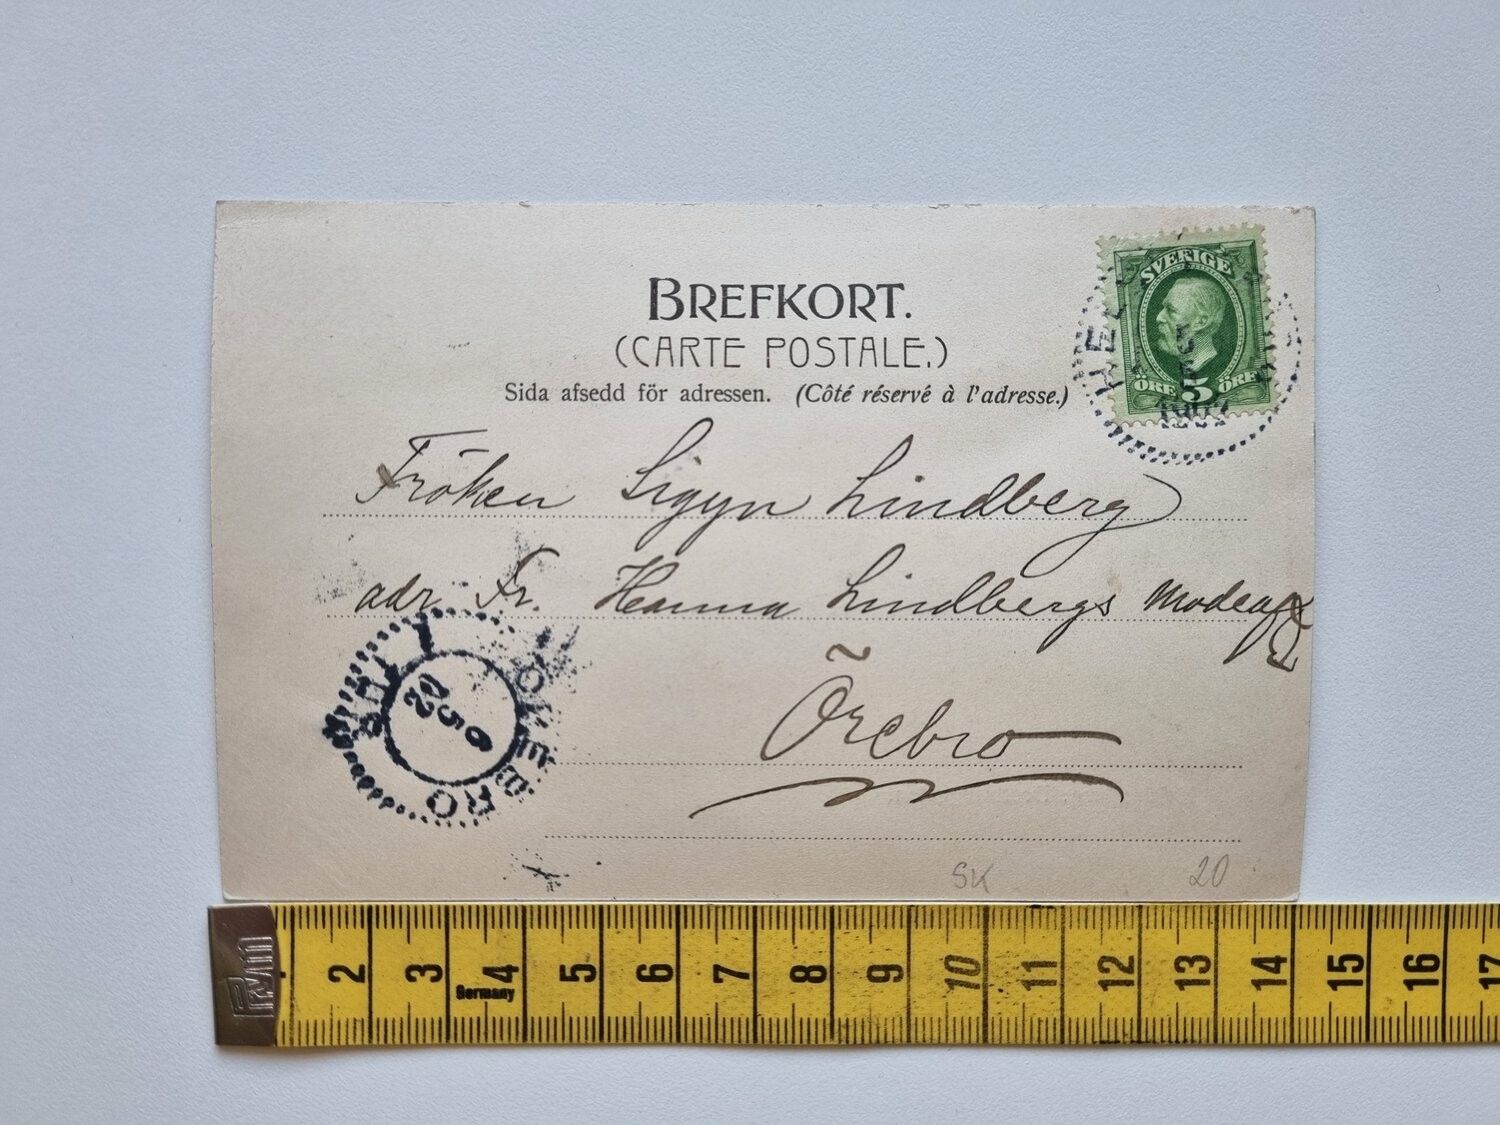 BREFKORT.
(CARTE POSTALE.)
Sida afsedd för adressen. (Côté réservé à l'adresse.)
SVERIGE
ÖRE 5 ÖRE
HEL
5
1902
Fröken Sigyn Lindberg
adr Fr. Hanna Lindbergs Modeaff
Örebro
ÖREBRO
1 TUR
6 5 02
SK 20
Prym
2 3 4 5 6 7 8 9 10 11 12 13 14 15 16 17
Germany